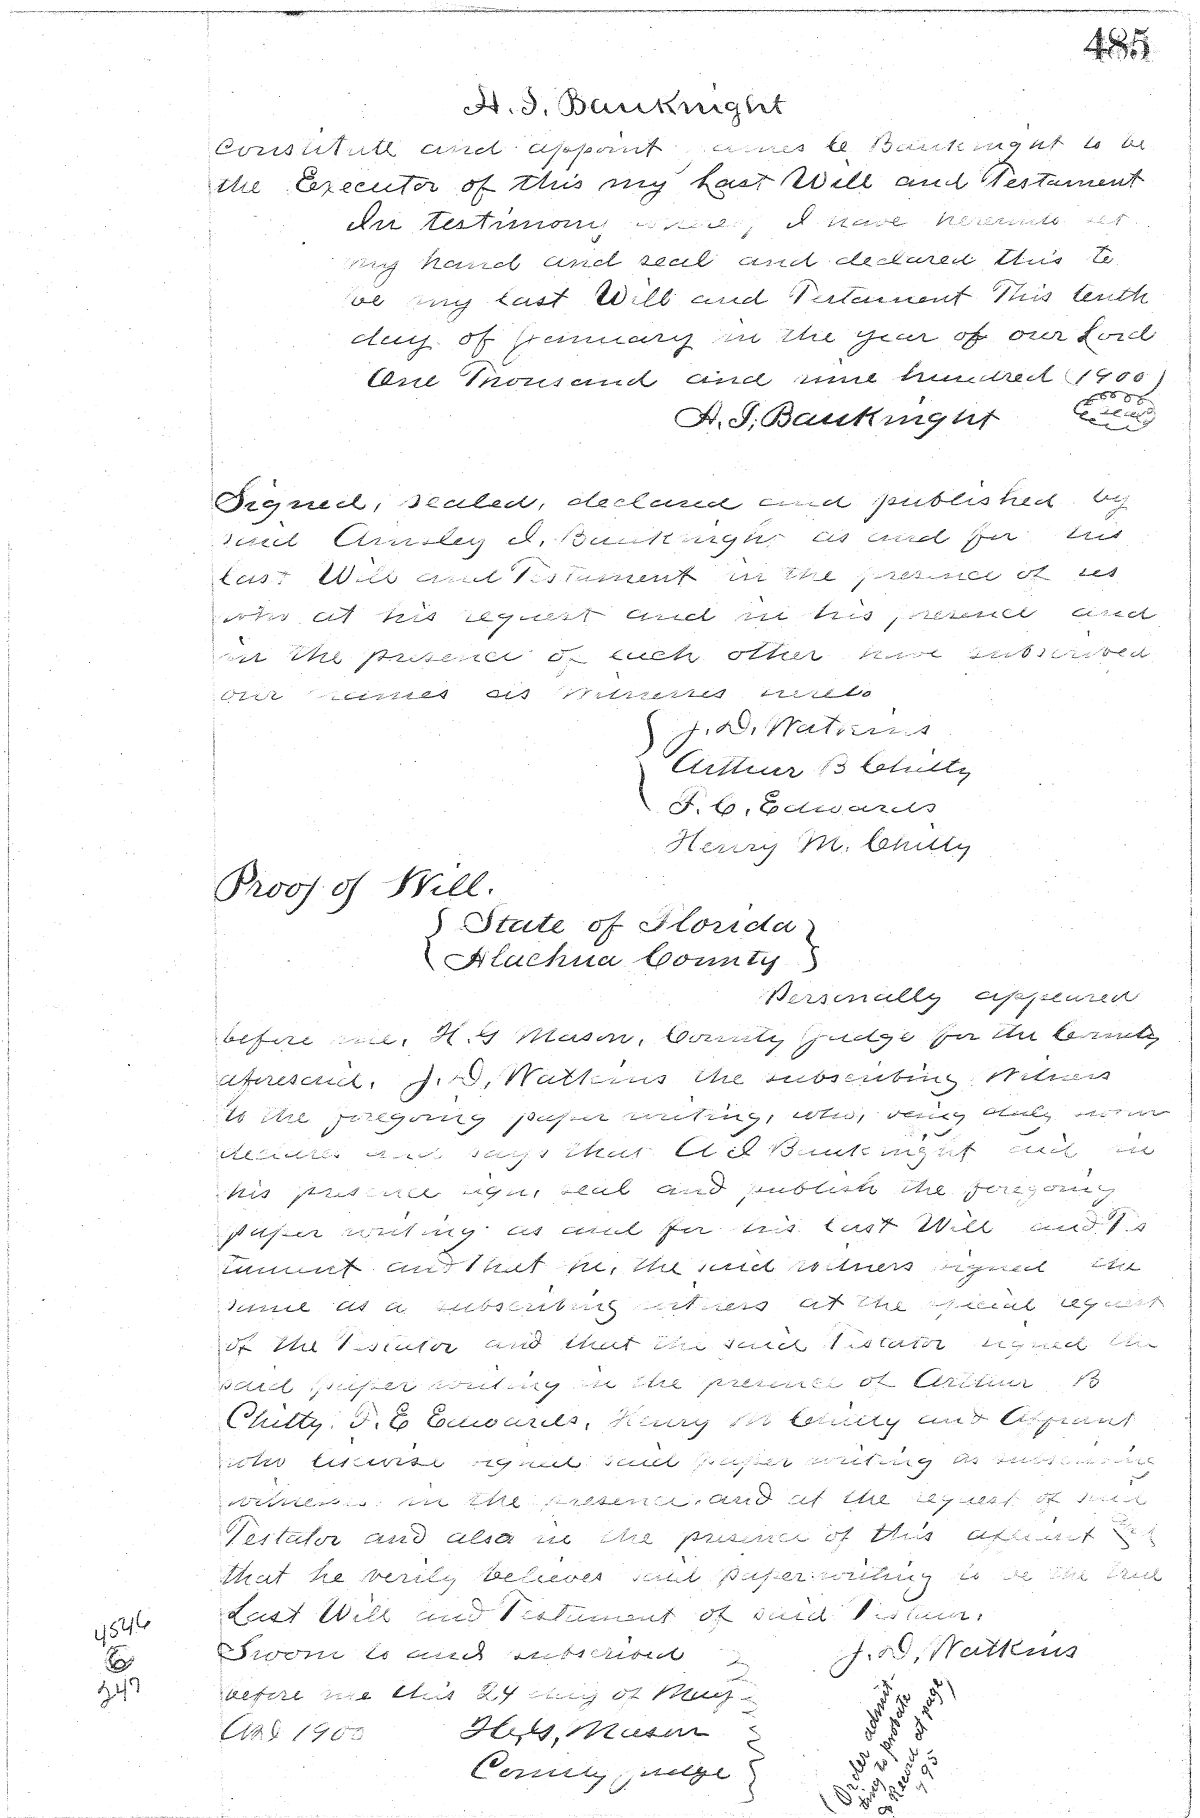 485
A. I. Bauknight
constitute and appoint James C Bauknight to be
the Executor of this my Last Will and Testament
In testimony whereof I have hereunto set
my hand and seal and declared this to
be my last Will and Testament This tenth
day of January in the year of our Lord
One Thousand and nine hundred (1900)
A. I. Bauknight seal
Signed, sealed, declared and published by
said Amsley I. Bauknight as and for his
last Will and Testament in the presence of us
who at his request and in his presence and
in the presence of each other have subscribed
our names as witnesses hereto
J. D. Watkins
Arthur B Chitty
F. C. Edwards
Henry M. Chitty
Proof of Will.
State of Florida
Alachua County
Personally appeared
before me, H. G Mason, County Judge for the County
aforesaid, J. D. Watkins the subscribing witness
to the foregoing paper writing, who, being duly sworn
declares and says that A I Bauknight did in
his presence sign, seal and publish the foregoing
paper writing as and for his last Will and Tes
tament and that he, the said witness signed the
same as a subscribing witness at the special request
of the Testator and that the said Testator signed the
said paper writing in the presence of Arthur B
Chitty, F. E Edwards, Henry M Chitty and Affiant
who likewise signed said paper writing as subscribing
witnesses in the presence and at the request of said
Testator and also in the presence of this affiant
that he verily believes said paper writing to be the true
Last Will and Testament of said Testator.
Sworn to and subscribed J. D. Watkins
before me this 24 day of May
A.D. 1900 H. G. Mason
County Judge
4546
6
347
(Order admit-
ting to probate
is Record at page
495)